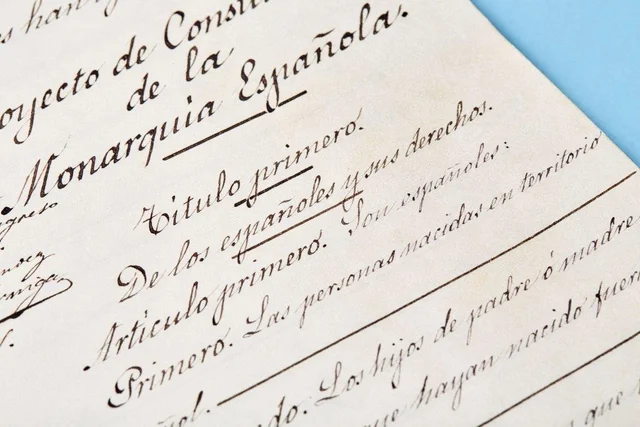 han
oyecto de Consti
de la
Monarquia Española.
Titulo primero.
De los españoles y sus derechos.
Articulo primero. Son españoles:
Primero. Las personas nacidas en territorio
ñol.
do. Los hijos de padre ó madre
ue hayan nacido fuer
que